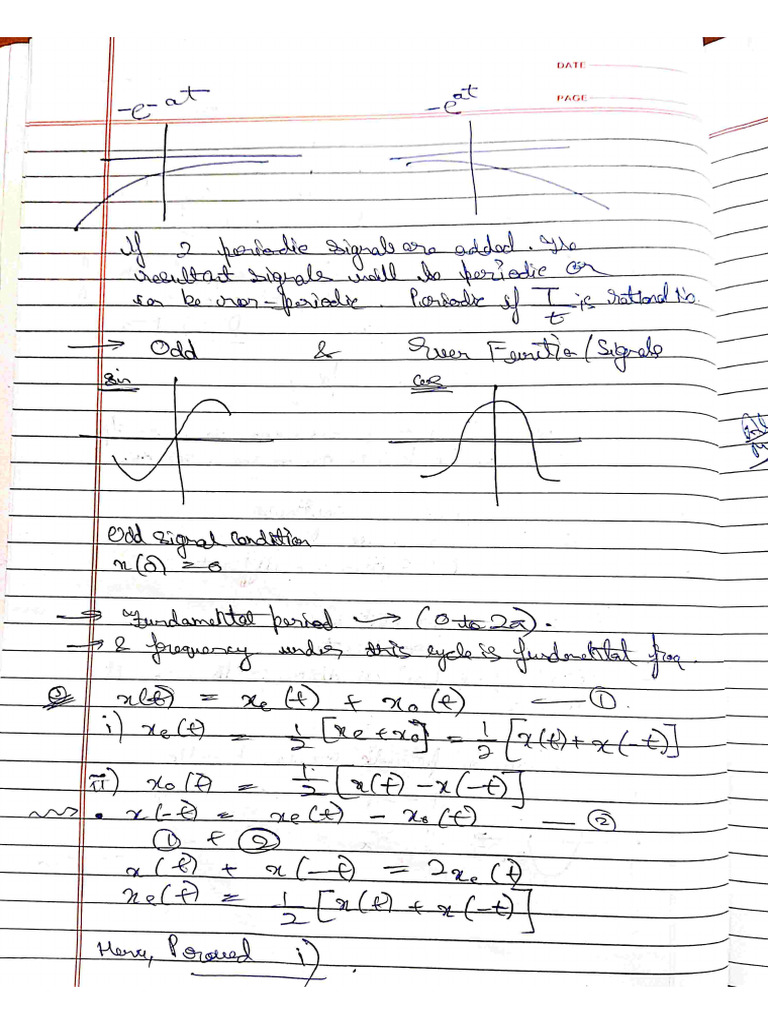 DATE
PAGE
-e-at -eat
If 2 periodic signals are added. The
resultant signals will be periodic or
or be non-periodic. Periodic if T/t is rational no.
→ Odd & Even Function/Signals
Sin Cos
Odd signal condition
x(0) = 0
→ Fundamental period → (0 to 2π).
→ & frequency under this cycle is fundamental freq
Q x(t) = xe(t) + xo(t) — ①
i) xe(t) = 1/2 [xe + xo] = 1/2 [x(t) + x(-t)]
ii) xo(t) = 1/2 [x(t) - x(-t)]
• x(-t) = xe(t) - xo(t) — ②
① + ②
x(t) + x(-t) = 2xe(t)
xe(t) = 1/2 [x(t) + x(-t)]
Hence, Proved i).